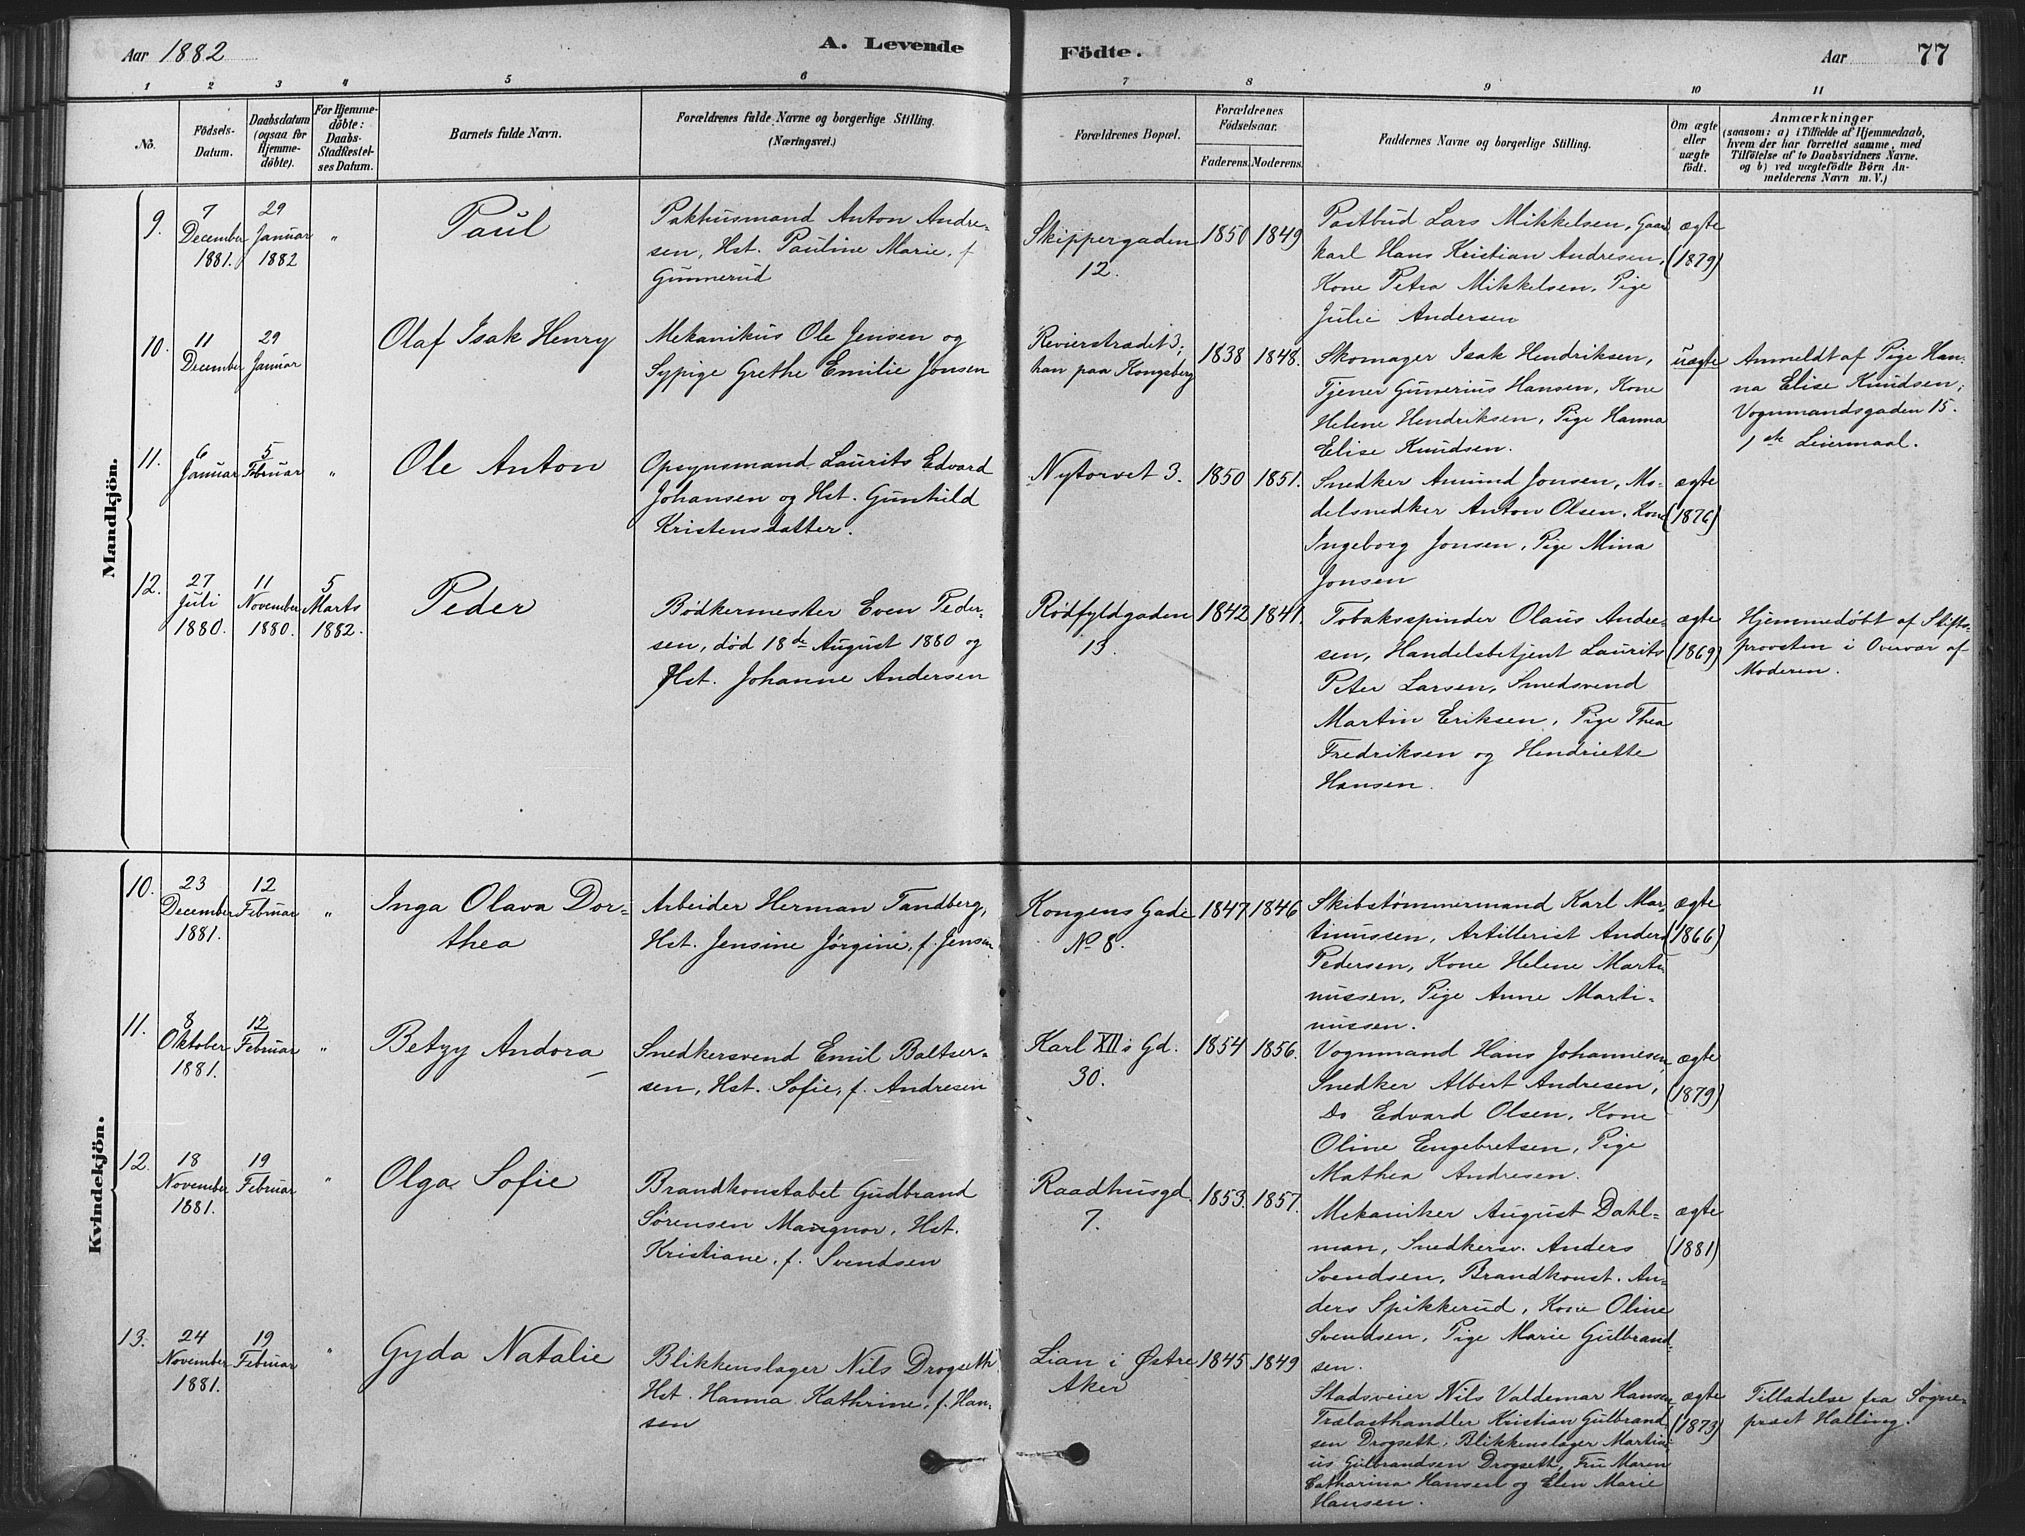 Aar 1882
A. Levende
Födte.
Aar
77
1 2 3 4 5 6 7 8 9 10 11
No.
Födsels-
Datum.
Daabsdatum
(ogsaa for
Hjemme-
döbte).
For Hjemme-
döbte:
Daabs-
Stadfæstel-
ses Datum.
Barnets fulde Navn.
Forældrenes fulde Navne og borgerlige Stilling.
(Næringsvei.)
Forældrenes Bopæl.
Forældrenes
Födselsaar.
Faderens. Moderens.
Faddernes Navne og borgerlige Stilling.
Om ægte
eller
uægte
födt.
Anmærkninger
(saasom: a) i Tilfælde af Hjemmedaab,
hvem der har forrettet samme, med
Tilföielse af to Daabsvidners Navne.
og b) ved uægtefödte Børn An-
melderens Navn m. V.)
Mandkjön.
9.
7
December
1881.
29
Januar
1882
"
Paul
Pakhusmand Anton Andre-
sen, Hst. Pauline Marie, f
Gunnerud
Skippergaden
12.
1850
1849
Postbud Lars Mikkelsen, Gaar
karl Hans Kristian Andresen,
Kone Petra Mikkelsen, Pige
Julie Andersen
ægte
(1879)
10.
11
December
29
Januar
Olaf Isak Henry
Mekanikus Ole Jensen og
Sypige Grethe Emilie Jonsen
Revierstrædet 3,
han paa Kongsberg
1838
1848.
Skomager Isak Hendriksen,
Tjener Gunerius Hansen, Kone
Helene Hendriksen, Pige Hanna
Elise Knudsen.
uægte
Anmeldt af Pige Han-
na Elise Knudsen,
Vognmandsgaden 15.
1ste Leiermaal.
11.
6
Januar
5
Februar
"
Ole Anton
Opsynsmand Laurits Edvard
Johansen og Hst. Gunhild
Kristensdatter.
Nytorvet 3.
1850
1851.
Snedker Amund Jonsen, Mo-
delsnedker Anton Olsen, Kone
Ingeborg Jonsen, Pige Mina
Jonsen
ægte
(1876)
12.
27
Juli
1880.
11
November
1880.
5
Marts
1882.
Peder
Bødkermester Even Peder-
sen, død 18de August 1880 og
Hst. Johanne Andersen
Rødfyldgaden
13.
1842
1841.
Tobaksspinder Olaus Andre-
sen, Handelsbetjent Laurits
Peter Larsen, Smedsvend
Martin Eriksen, Pige Thea
Fredriksen og Hendriette
Hansen.
ægte
(1869)
Hjemmedøbt af Stifts-
provsten i Overvær af
Moderen.
Kvindekjön.
10.
23
December
1881.
12
Februar
"
Inga Olava Dor-
thea
Arbeider Herman Tandberg,
Hst. Jensine Jørgine, f. Jensen
Kongens Gade
No 8.
1847
1846
Skibstømmermand Karl Mar-
tinussen, Artillerist Anders
Pedersen, Kone Helene Marti
nussen, Pige Anne Marti-
nussen.
ægte
(1866)
11.
8
Oktober
1881.
12
Februar
"
Betzy Andora
Snedkersvend Emil Baltser-
sen, Hst. Sofie, f. Andresen
Karl XII's Gd.
30.
1854
1856.
Vognmand Hans Johannesen,
Snedker Albert Andresen,
Do Edvard Olsen, Kone
Oline Engebretsen, Pige
Mathea Andresen.
ægte
(1879)
12.
18
November
1881.
19
Februar
"
Olga Sofie
Brandkonstabel Gudbrand
Sørensen Mangnor, Hst.
Kristiane, f. Svendsen
Raadhusgd.
7.
1853.
1857.
Mekaniker August Dahl-
man, Snedkersv. Anders
Svendsen, Brandkonst. An-
ders Spikkerud, Kone Oline
Svendsen, Pige Marie Gulbrand-
sen.
ægte
(1881)
13.
24
November
1881.
19
Februar
"
Gyda Natalie
Blikkenslager Nils Drogseth
Hst. Hanna Kathrine, f. Han-
sen
Lian i Østre
Aker
1845
1849
Stadsveier Nils Valdemar Hansen
Trælasthandler Kristian Gulbrand
sen Drogseth, Blikkenslager Martin
us Gulbrandsen Drogseth, Fru Maren
Catharina Hansen og Elen Marie
Hansen.
ægte
(1873)
Tilladelse fra Sogne-
præst Halling.